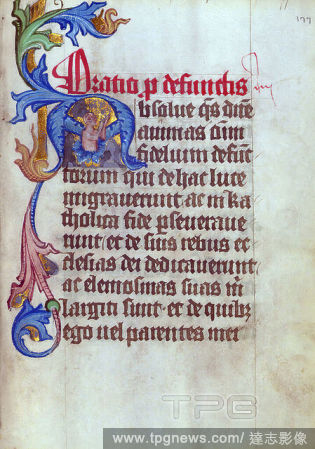 177
Oratio p defunctis
Absalue q̄s dn̄e
animas om̄
fidelium defunc
torum qui de hac luce
migrauerunt ac in ka
tholica fide p̱seueraue
runt et de suis rebus ec
clesias dei dedicauerunt
ac elemosinas suas m̄
largiti sunt et de quibꝫ
ego uel parentes mei
TPG
www.tpgnews.com/ 達志影像